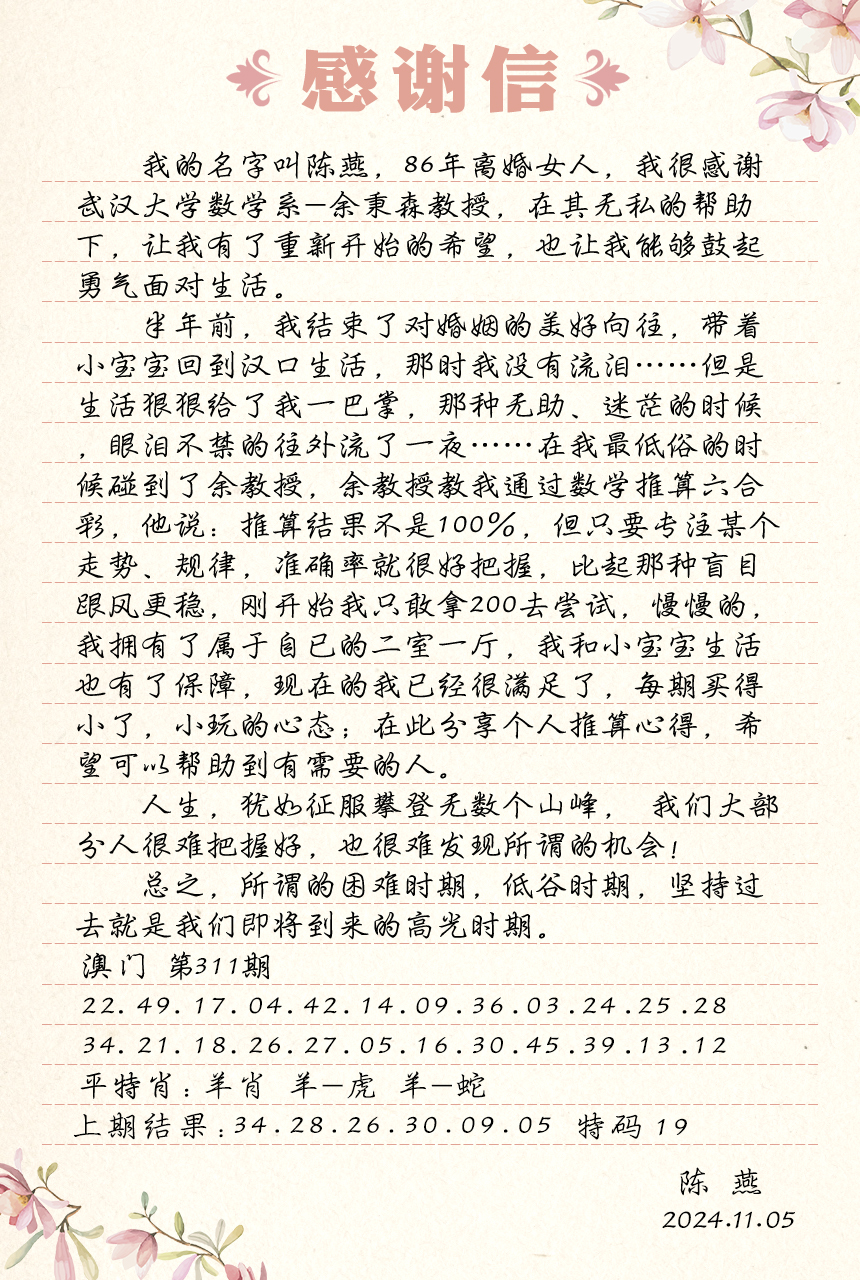 感谢信
我的名字叫陈燕，86年离婚女人，我很感谢
武汉大学数学系—余秉森教授，在其无私的帮助
下，让我有了重新开始的希望，也让我能够鼓起
勇气面对生活。
半年前，我结束了对婚姻的美好向往，带着
小宝宝回到汉口生活，那时我没有流泪……但是
生活狠狠给了我一巴掌，那种无助、迷茫的时候
，眼泪不禁的往外流了一夜……在我最低俗的时
候碰到了余教授，余教授教我通过数学推算六合
彩，他说：推算结果不是100%，但只要专注某个
走势、规律，准确率就很好把握，比起那种盲目
跟风更稳，刚开始我只敢拿200去尝试，慢慢的，
我拥有了属于自已的二室一厅，我和小宝宝生活
也有了保障，现在的我已经很满足了，每期买得
小了，小玩的心态；在此分享个人推算心得，希
望可以帮助到有需要的人。
人生，犹如征服攀登无数个山峰， 我们大部
分人很难把握好，也很难发现所谓的机会！
总之，所谓的困难时期，低谷时期，坚持过
去就是我们即将到来的高光时期。
澳门 第311期
22.49.17.04.42.14.09.36.03.24.25.28
34.21.18.26.27.05.16.30.45.39.13.12
平特肖：羊肖 羊—虎 羊—蛇
上期结果：34.28.26.30.09.05 特码 19
陈 燕
2024.11.05